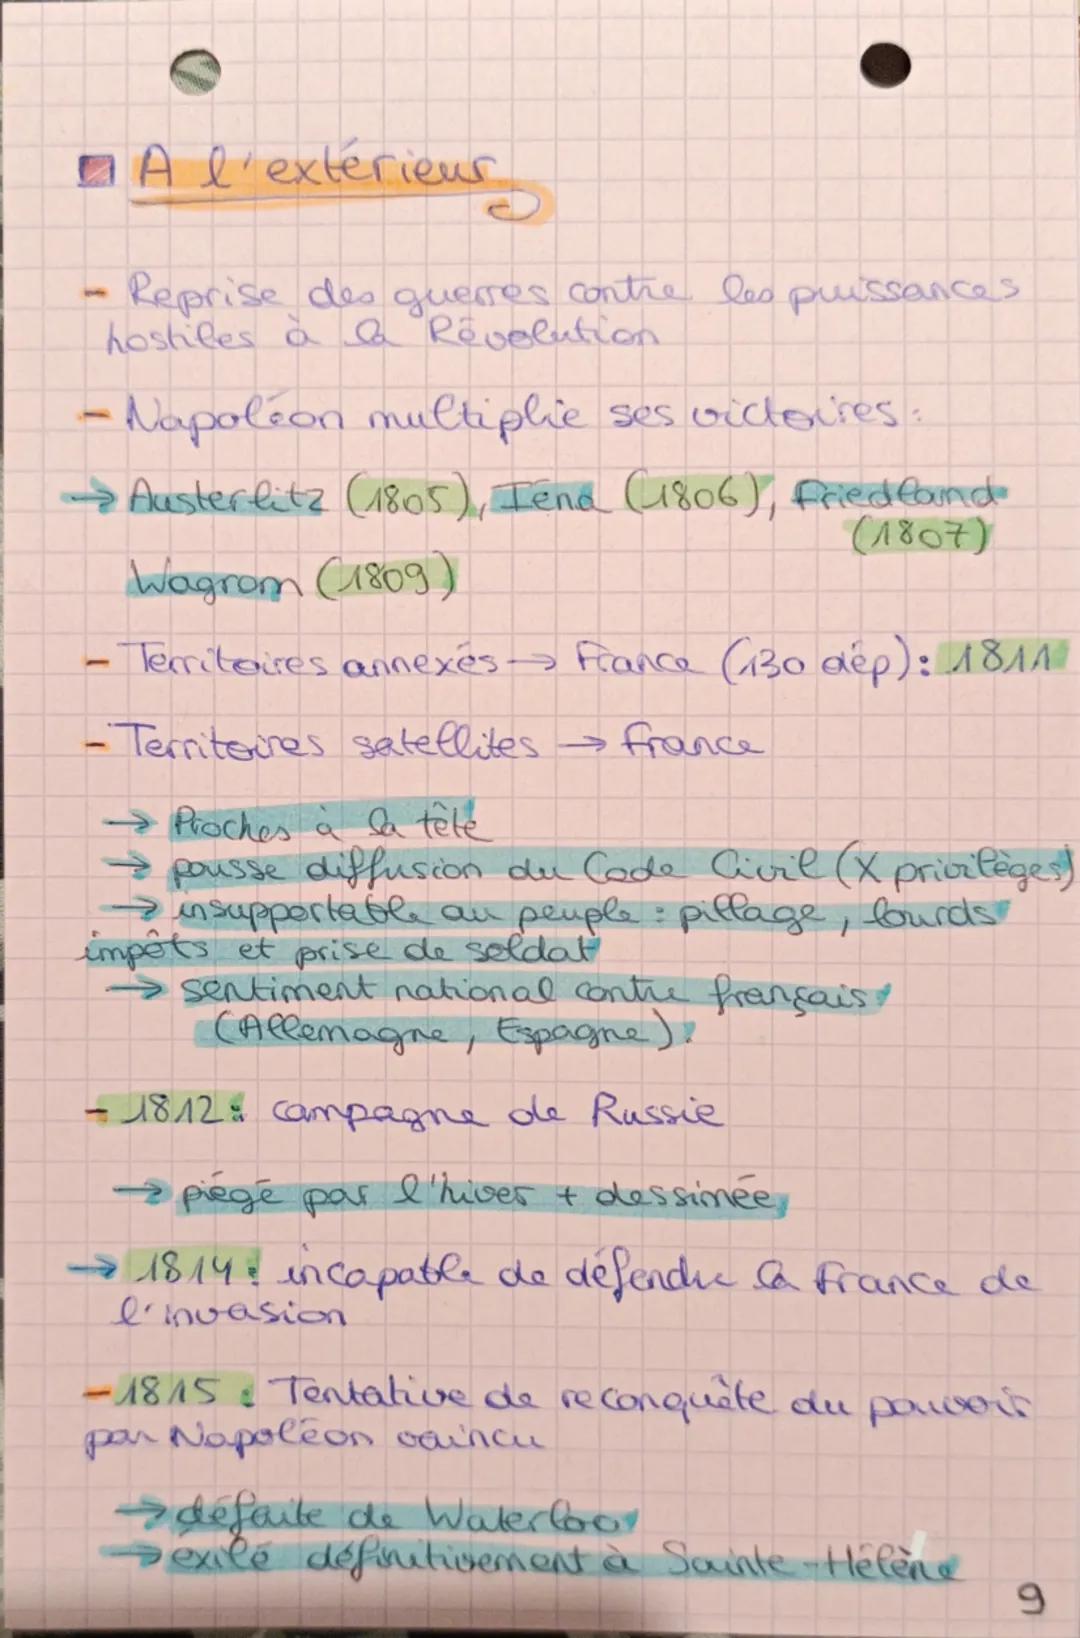 A l'extérieur
- Reprise des guerres contre les puissances
hostiles à la Révolution
- Napoléon multiplie ses victoires :
→ Austerlitz (1805), Iéna (1806), Friedland
(1807)
Wagrom (1809)
- Territoires annexés → France (130 dép) : 1811
- Territoires satellites → France
→ Proches à la tête
→ pousse diffusion du Code Civil (X privilèges)
→ insupportable au peuple : pillage, lourds
impôts et prise de soldat
→ sentiment national contre français
(Allemagne, Espagne).
- 1812 : campagne de Russie
→ piégé par l'hiver + dessimée
→ 1814 : incapable de défendre la France de
l'invasion
- 1815 : Tentative de reconquête du pouvoir
par Napoléon vaincu
→ défaite de Waterloo
→ exilé définitivement à Sainte-Hélène
9